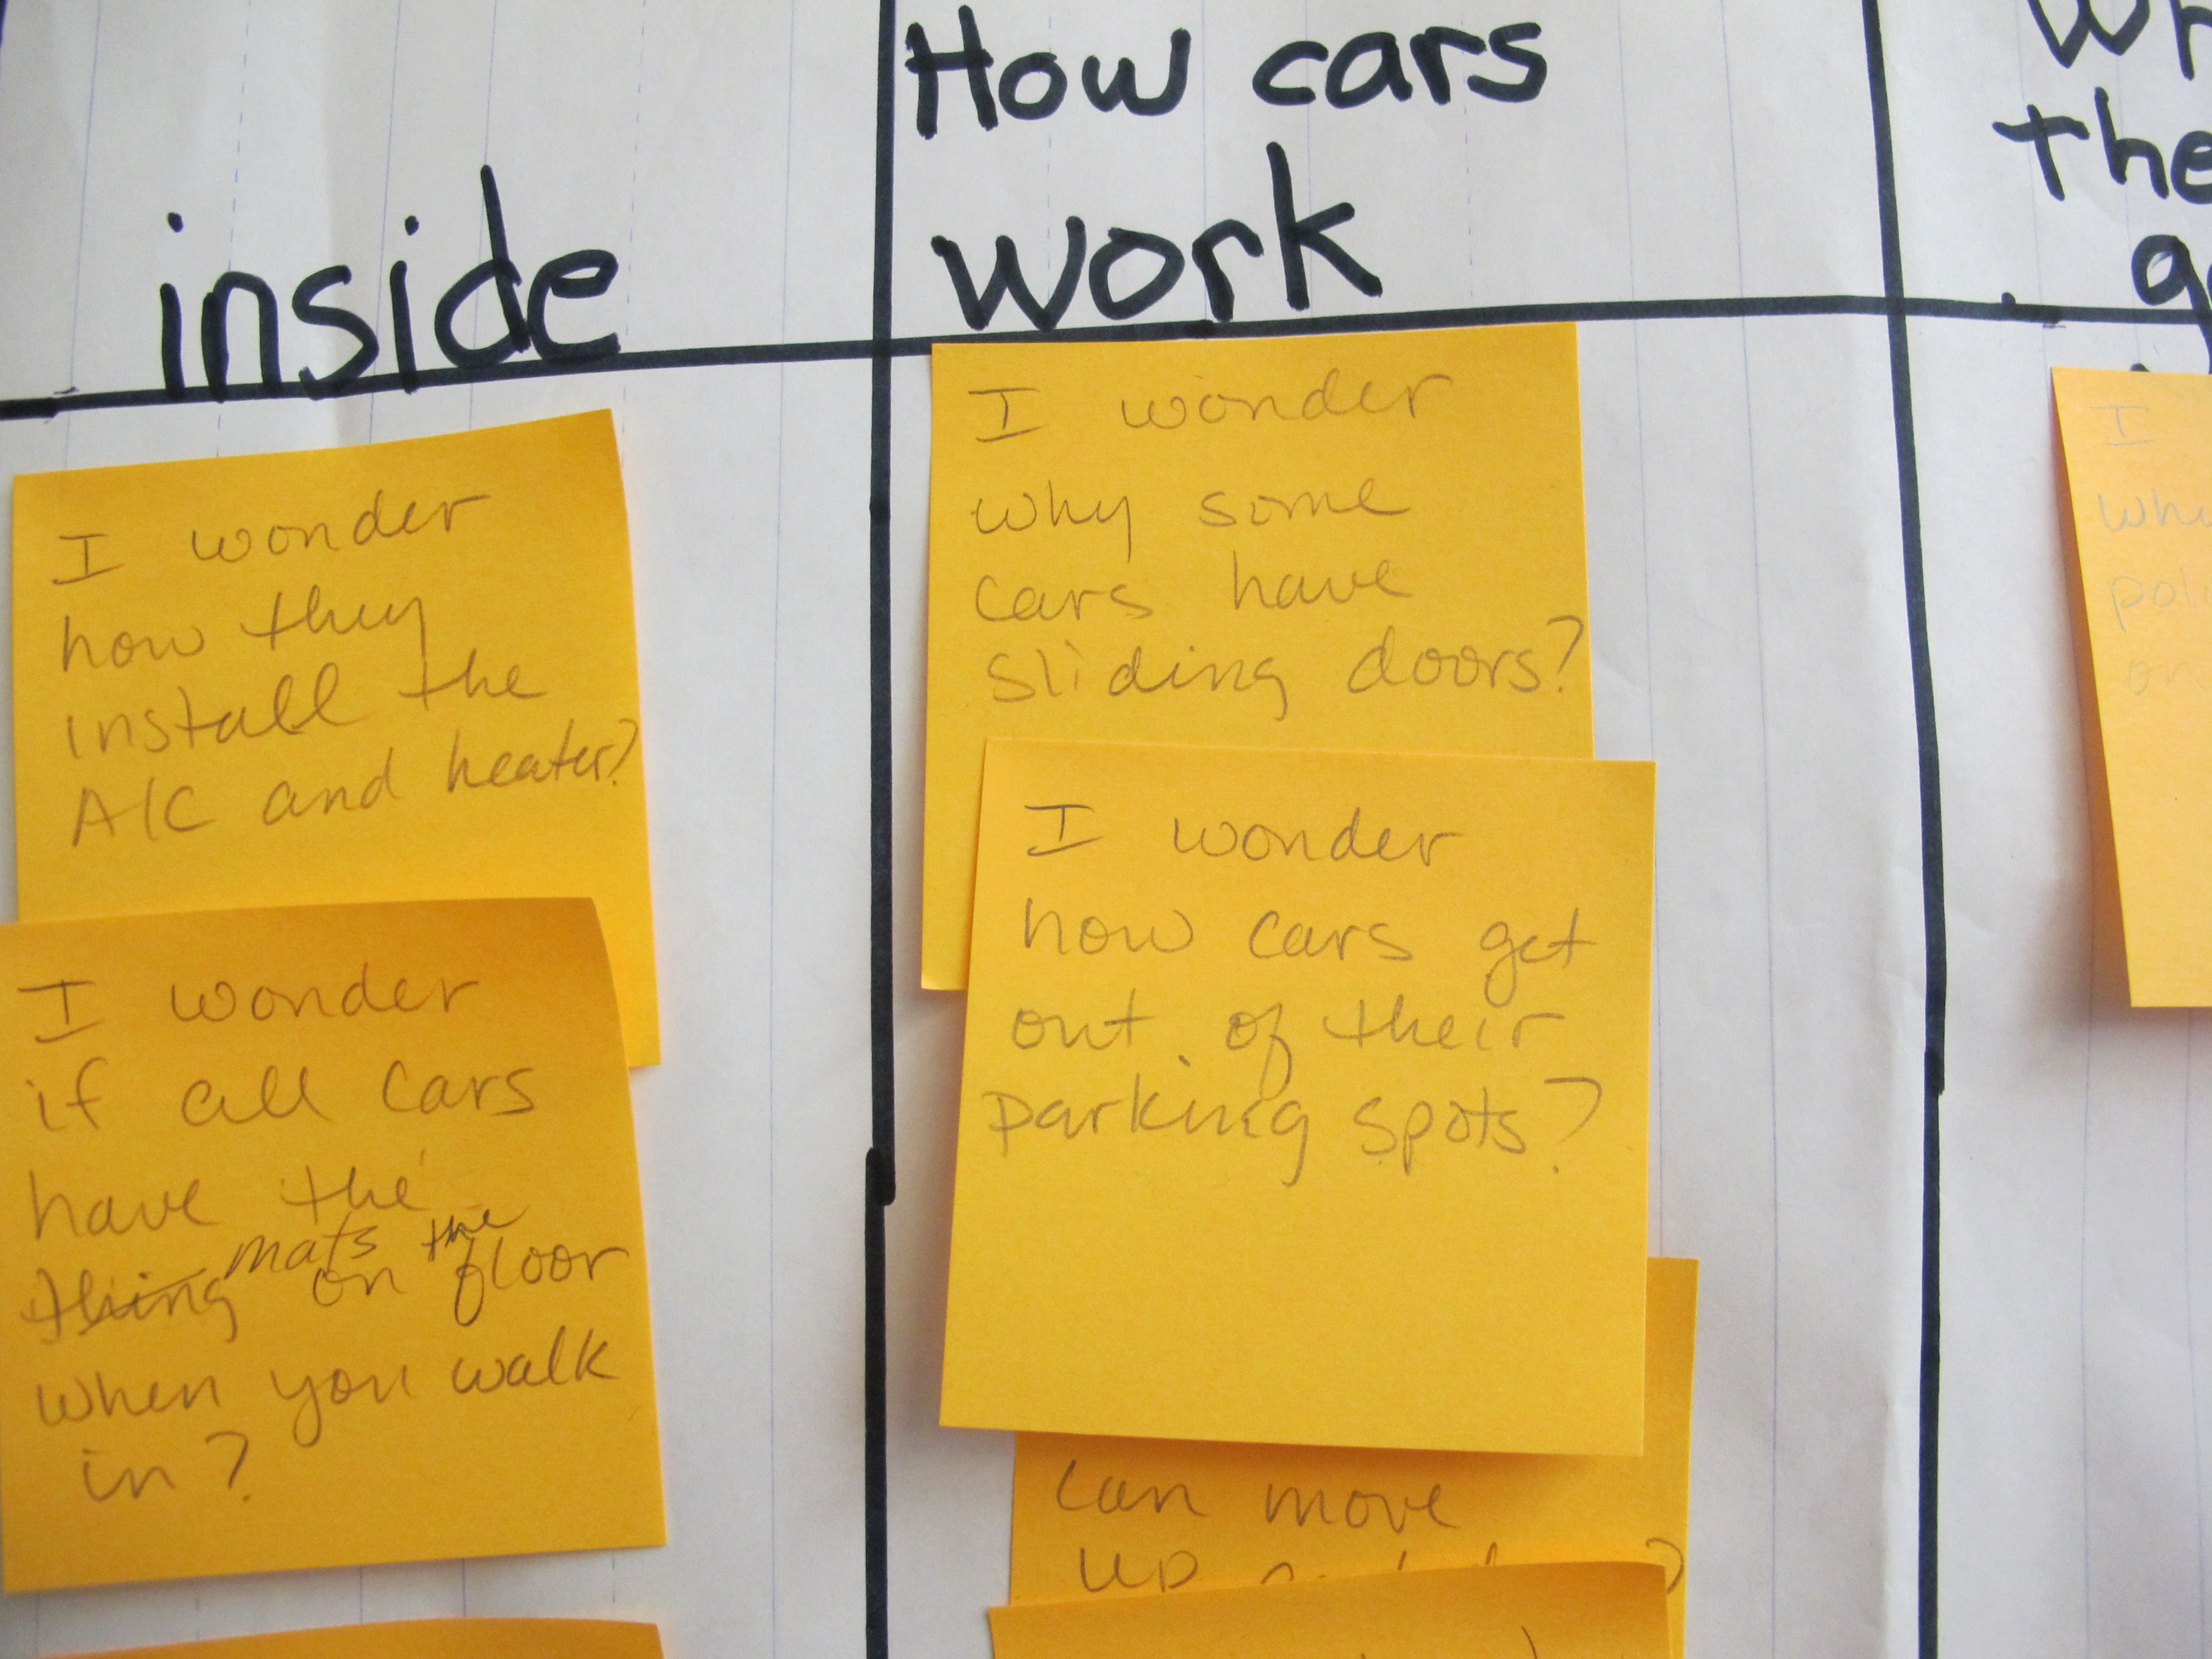 inside
I wonder
how they
install the
A/C and heater?
I wonder
if all cars
have the
thing mats on the floor
when you walk
in?
How cars
work
I wonder
why some
cars have
sliding doors?
I wonder
how cars get
out of their
parking spots?
can move
up
the
I
on